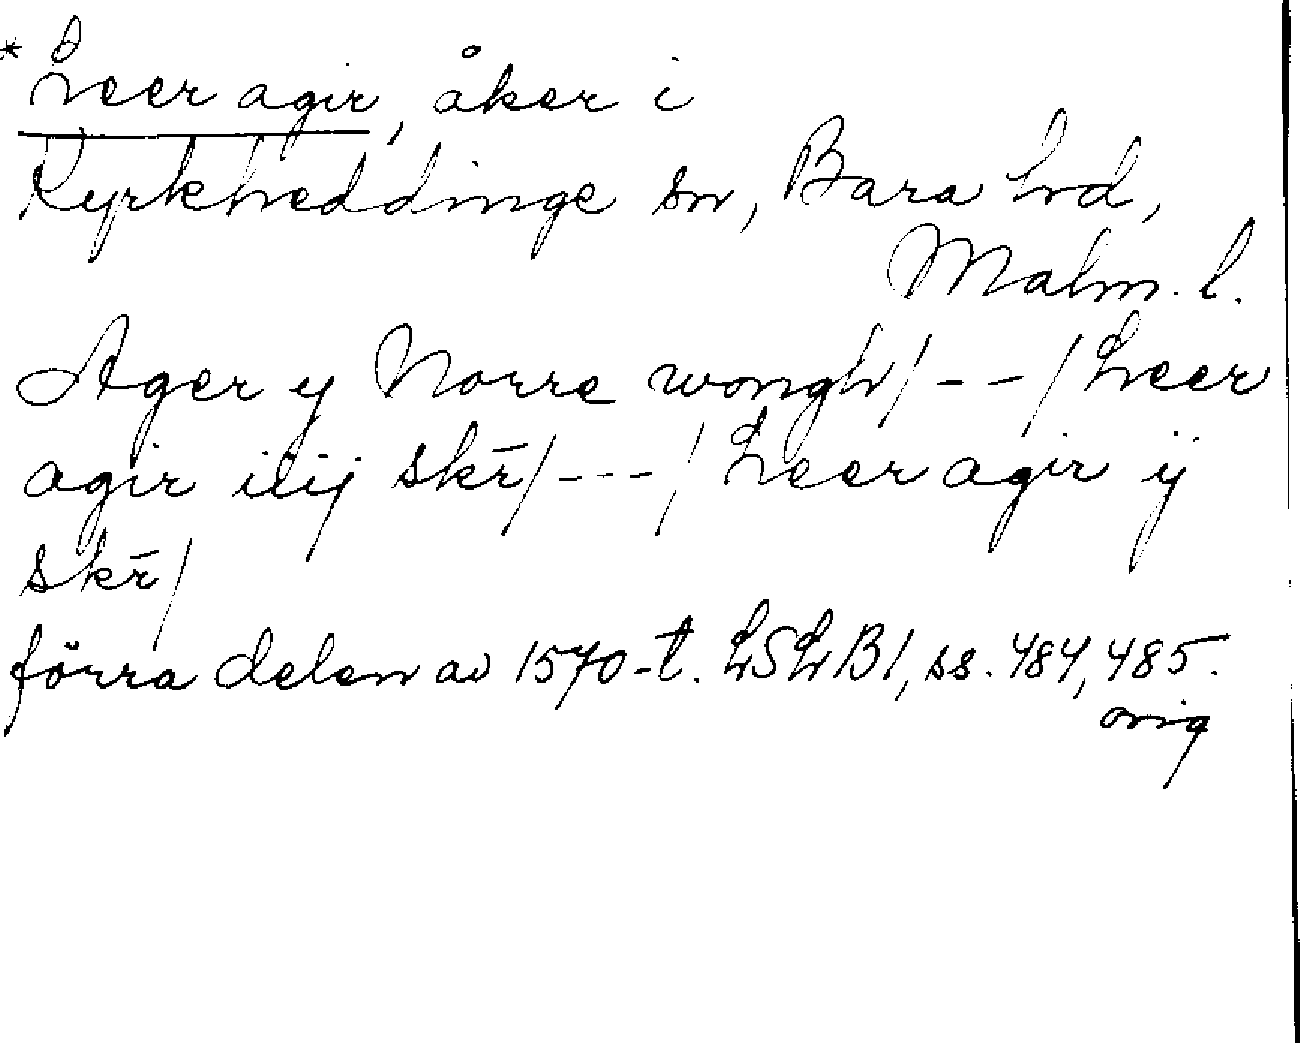 * Leer agir, åker i
Kyrkheddinge sn, Bara hd,
Malm. l.
Ager y Norre wongh/ - - / Leer
agir iiij skr̄/ - - - / Leer agir ij
skr̄/
förra delen av 1570-t. LSLB1, ss. 484, 485.
orig